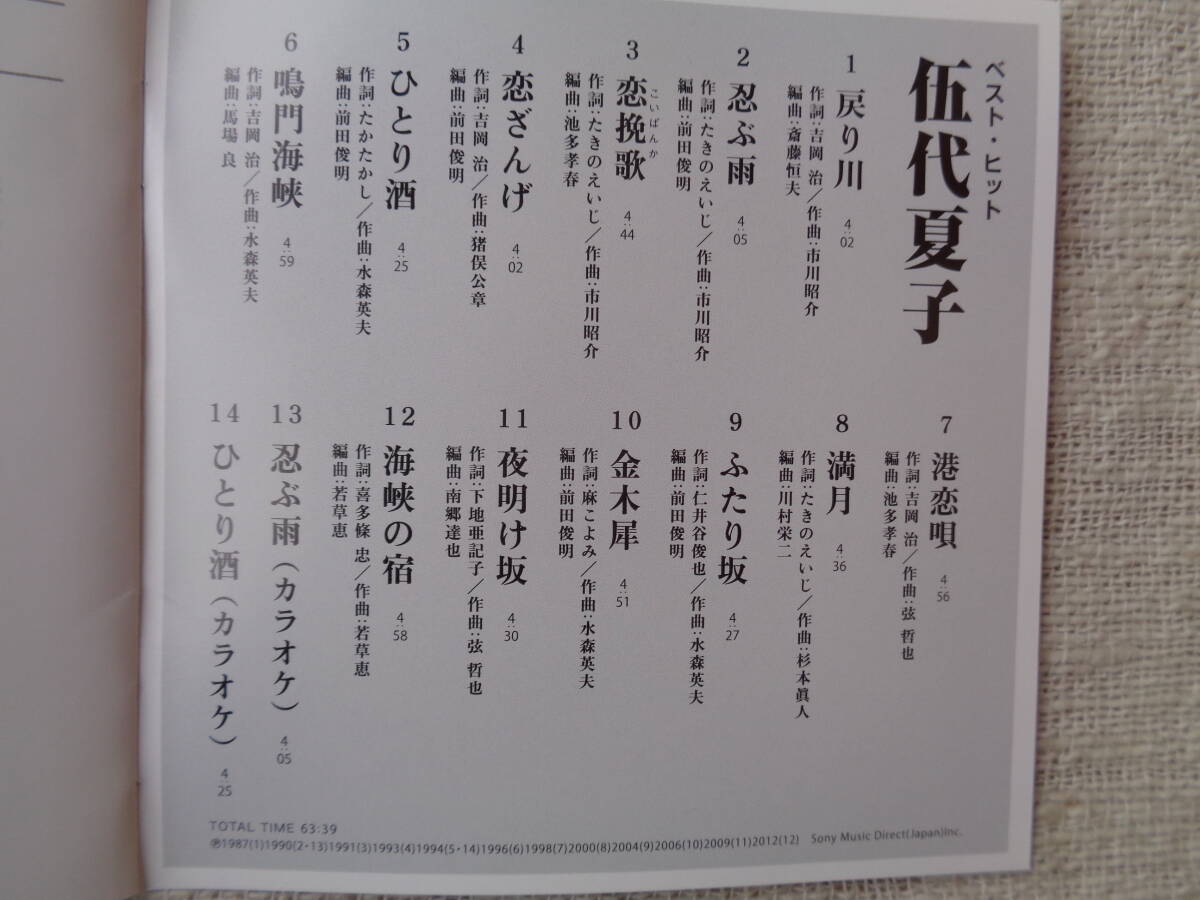 ベスト・ヒット
伍代夏子
1 戻り川 4:02
作詞:吉岡 治/作曲:市川昭介
編曲:斎藤恒夫
2 忍ぶ雨 4:05
作詞:たきのえいじ/作曲:市川昭介
編曲:前田俊明
3 恋挽歌 4:44
こいばんか
作詞:たきのえいじ/作曲:市川昭介
編曲:池多孝春
4 恋ざんげ 4:02
作詞:吉岡 治/作曲:猪俣公章
編曲:前田俊明
5 ひとり酒 4:25
作詞:たかたかし/作曲:水森英夫
編曲:前田俊明
6 鳴門海峡 4:59
作詞:吉岡 治/作曲:水森英夫
編曲:馬場 良
7 港恋唄 4:56
作詞:吉岡 治/作曲:弦 哲也
編曲:池多孝春
8 満月 4:36
作詞:たきのえいじ/作曲:杉本眞人
編曲:川村栄二
9 ふたり坂 4:27
作詞:仁井谷俊也/作曲:水森英夫
編曲:前田俊明
10 金木犀 4:51
作詞:麻こよみ/作曲:水森英夫
編曲:前田俊明
11 夜明け坂 4:30
作詞:下地亜記子/作曲:弦 哲也
編曲:南郷達也
12 海峡の宿 4:58
作詞:喜多條 忠/作曲:若草恵
編曲:若草恵
13 忍ぶ雨(カラオケ) 4:05
14 ひとり酒(カラオケ) 4:25
TOTAL TIME 63:39
℗1987(1)1990(2・13)1991(3)1993(4)1994(5・14)1996(6)1998(7)2000(8)2004(9)2006(10)2009(11)2012(12) Sony Music Direct(Japan)Inc.